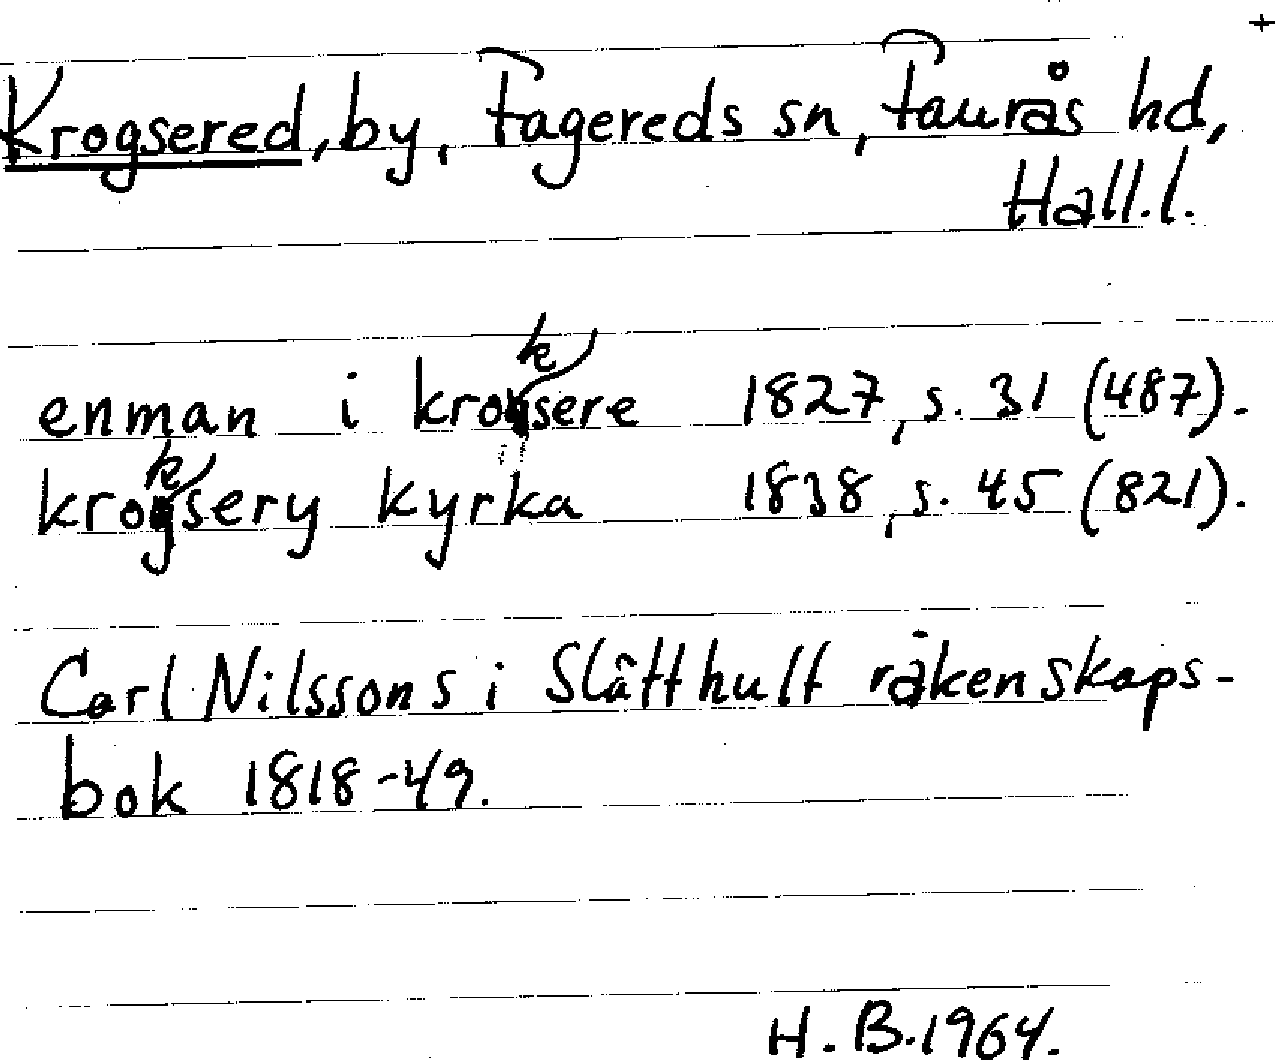 +
Krogsered, by, Fagereds sn, Faurås hd,
Hall.l.
enman i kroksere 1827, s. 31 (487).
kroksery kyrka 1838, s. 45 (821).
Carl Nilssons i Slätthult räkenskaps-
bok 1818-49.
H. B. 1964.